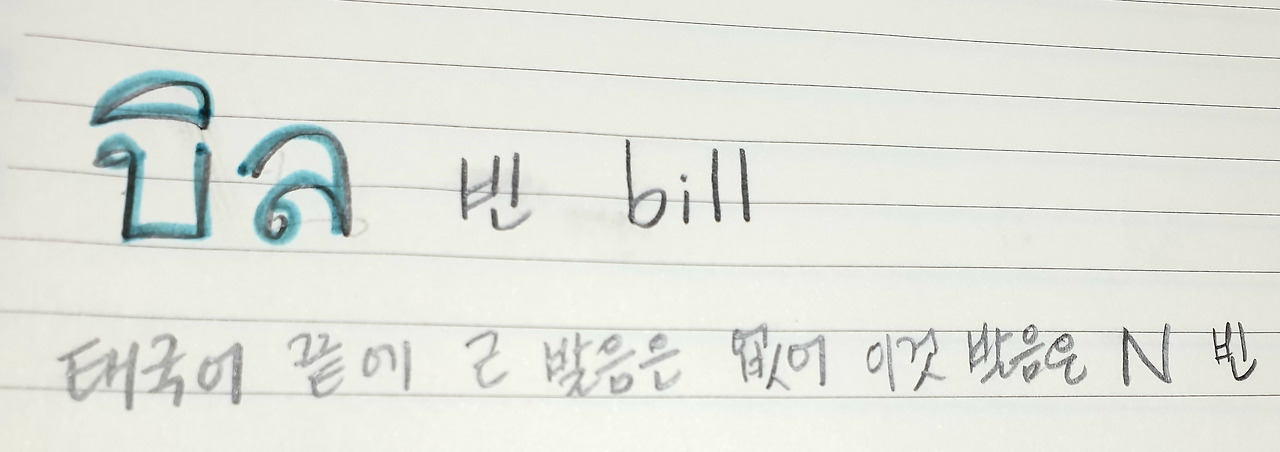 บิล 빈 bill
태국어 끝에 ㄹ 발음은 없어 이것 발음은 N 빈